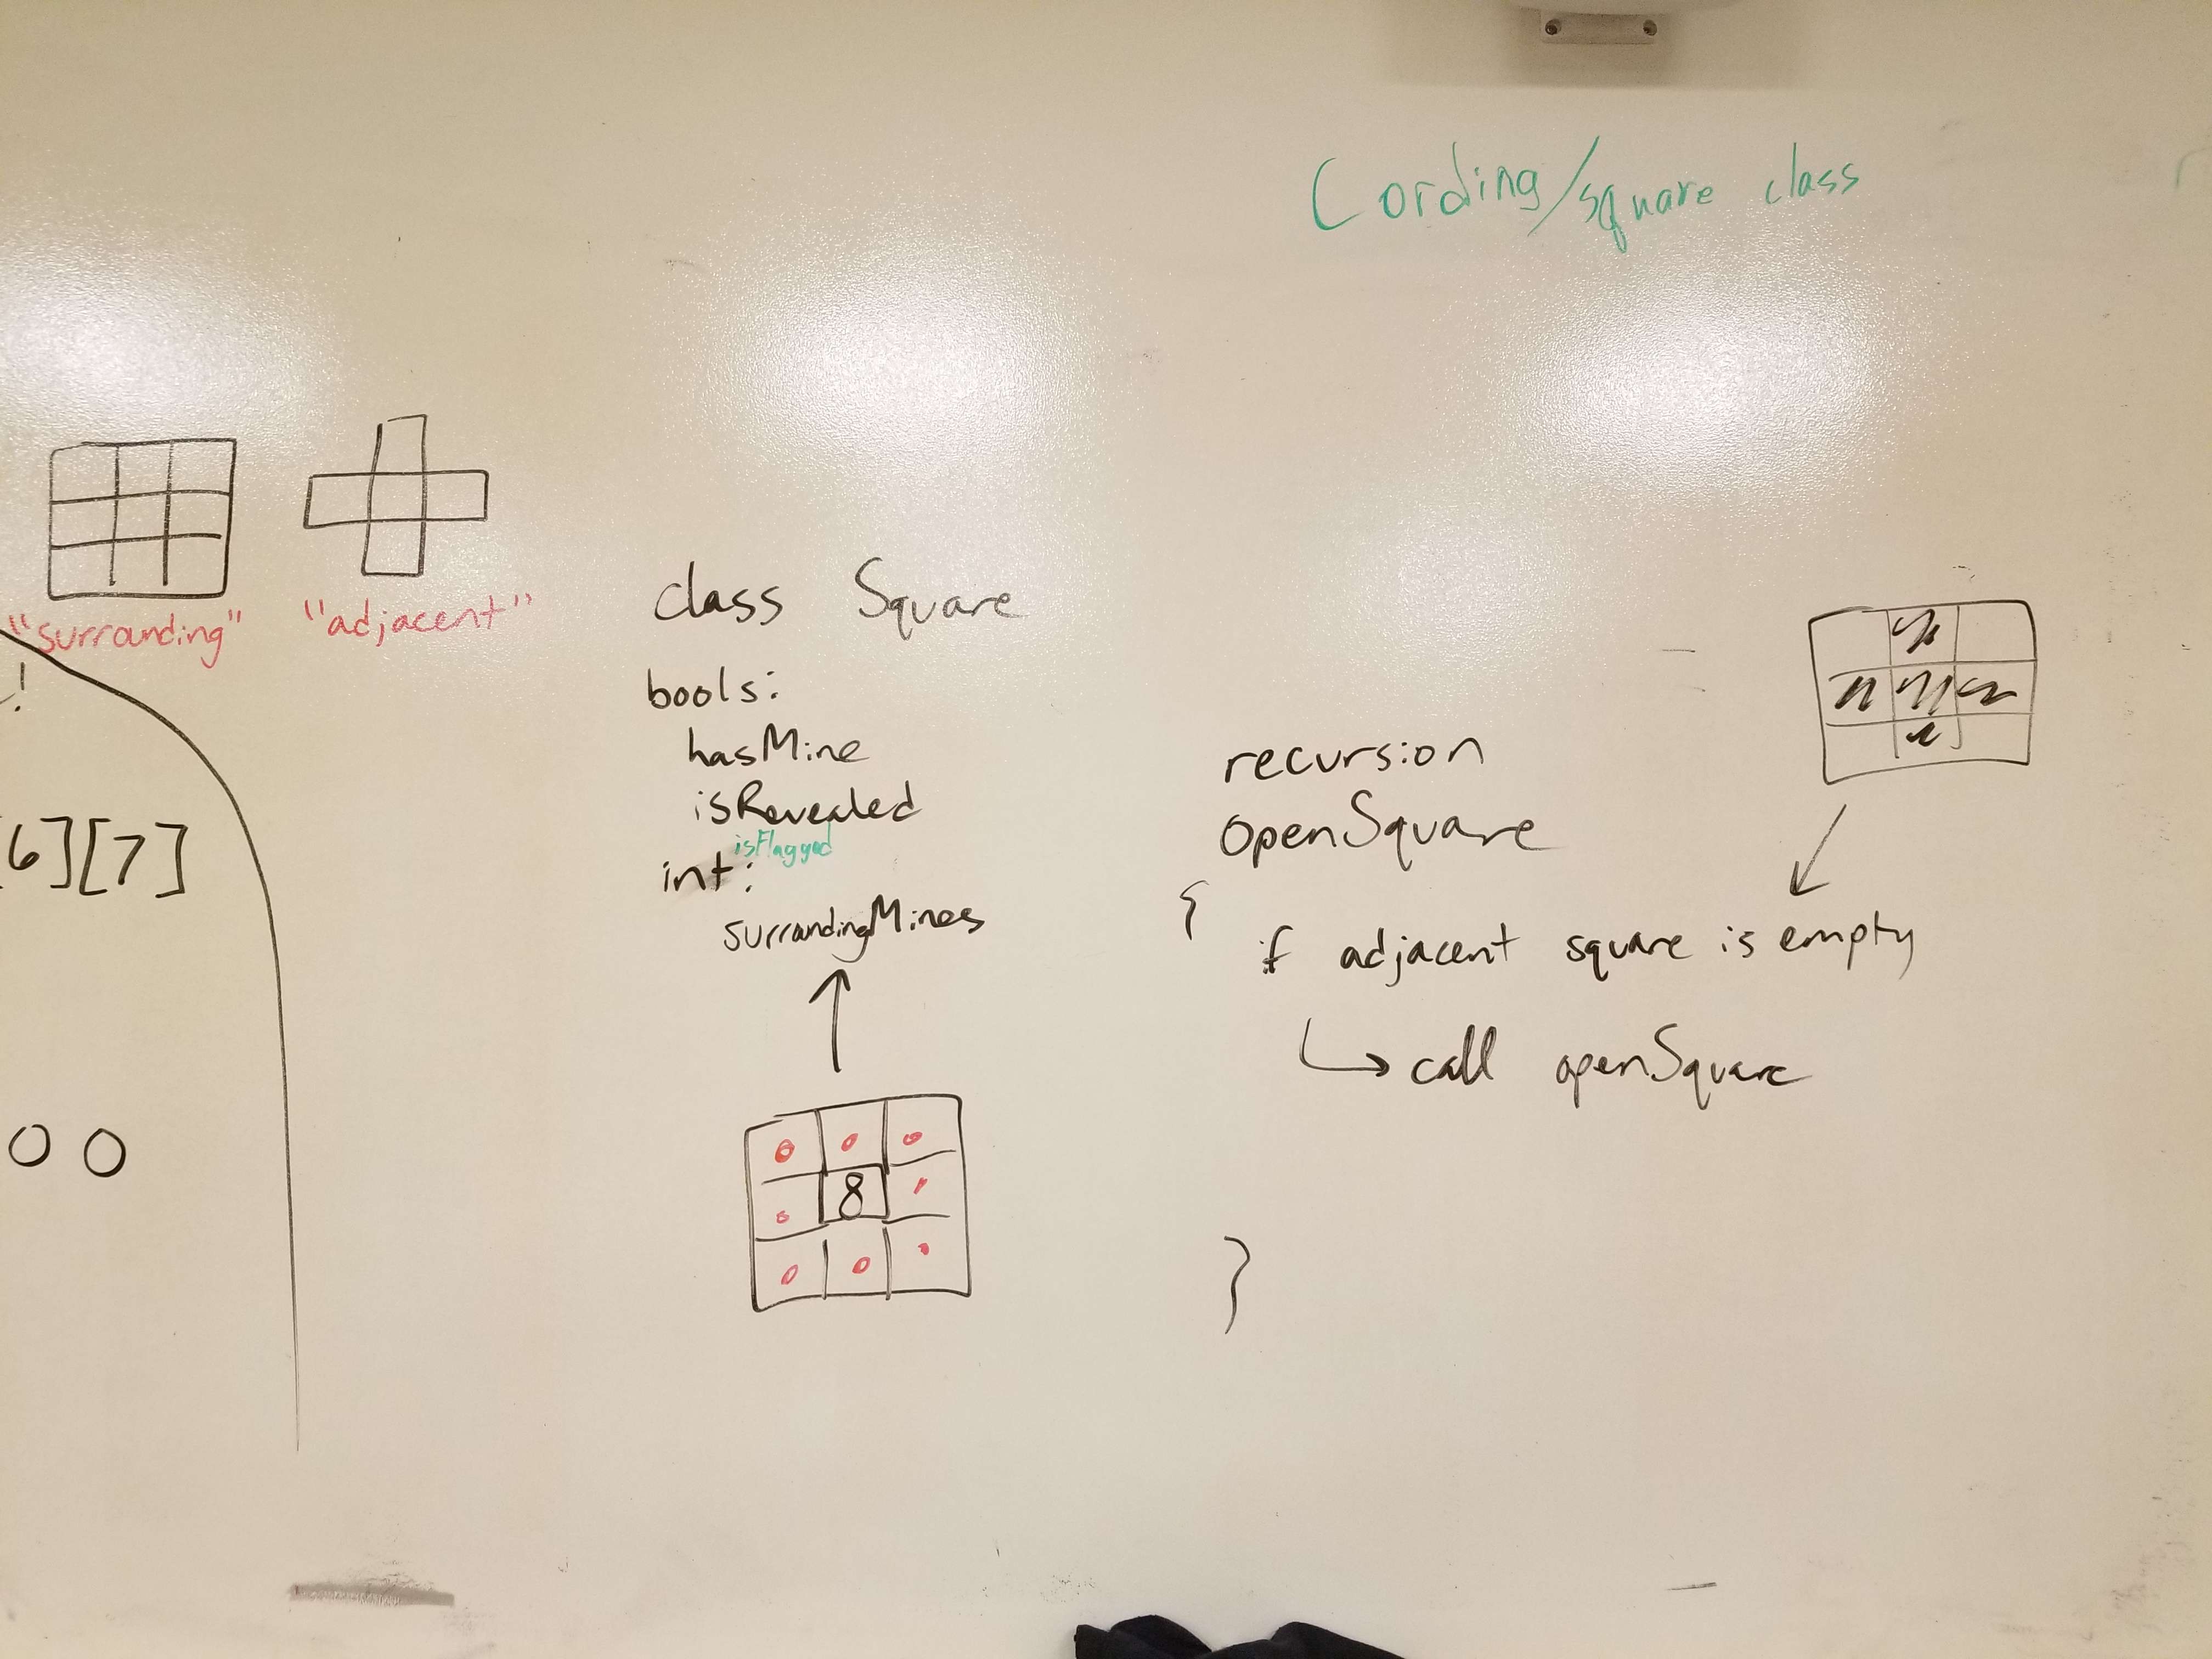 Cording/square class
"surranding"
"adjacent"
!
6][7]
00
class Square
bools:
hasMine
isRevealed
isFlagged
int:
surrandingMines
8
recursion
openSquare
{
if adjacent square is empty
↳ call openSquare
}